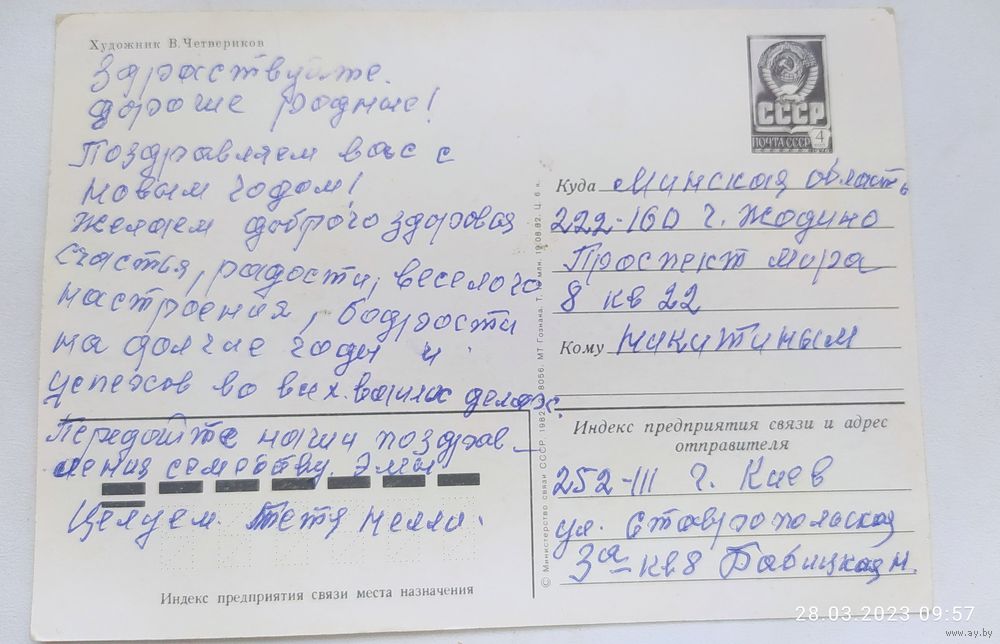 Художник В. Четвериков
Здраствуйте.
дорогие родные!
Поздравляем вас с
новым годом!
желаем доброго здоровая
счастья, радости, веселого
настроения, бодрости
на долгие годы и
успехов во всех ваших делах.
Передайте наши поздрав-
ления семейству Эмы
Целуем. Тетя Нелли.
Индекс предприятия связи места назначения
© Министерство связи СССР. 1982
МТ Гознака.
СССР
ПОЧТА СССР 4
Куда Минская область
222-160 г. Жодино
Проспект мира
8 кв 22
Кому Никитиным
Индекс предприятия связи и адрес
отправителя
252-111 г. Киев
ул. Ставропольская
3а кв 8 Бабицкая Н.
28.03.2023 09:57
www.ay.by